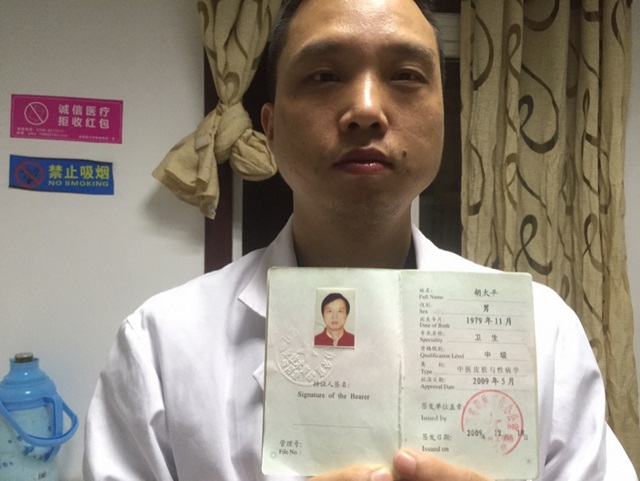 诚信医疗
拒收红包
禁止吸烟
NO SMOKING
持证人签名:
Signature of the Bearer
管理号:
File No
姓名:
Full Name
胡大平
性别:
Sex
男
出生年月
Date of Birth
1979 年 11 月
专业名称:
Speciality
卫 生
资格级别:
Qualification Level
中 级
类别:
Type
中医皮肤与性病学
批准日期
Approval Date
2009 年 5 月
签发单位盖章
Issued by
签发日期:
Issued on
2009